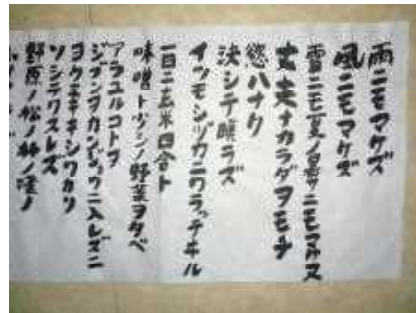 雨ニモマケズ
風ニモマケズ
雪ニモ夏ノ暑サニモマケヌ
丈夫ナカラダヲモチ
慾ハナク
決シテ瞋ラズ
イツモシヅカニワラッテヰル
一日ニ玄米四合ト
味噌ト少シノ野菜ヲタベ
アラユルコトヲ
ジブンヲカンジョウニ入レズニ
ヨクミキキシワカリ
ソシテワスレズ
野原ノ松ノ林ノ蔭ノ